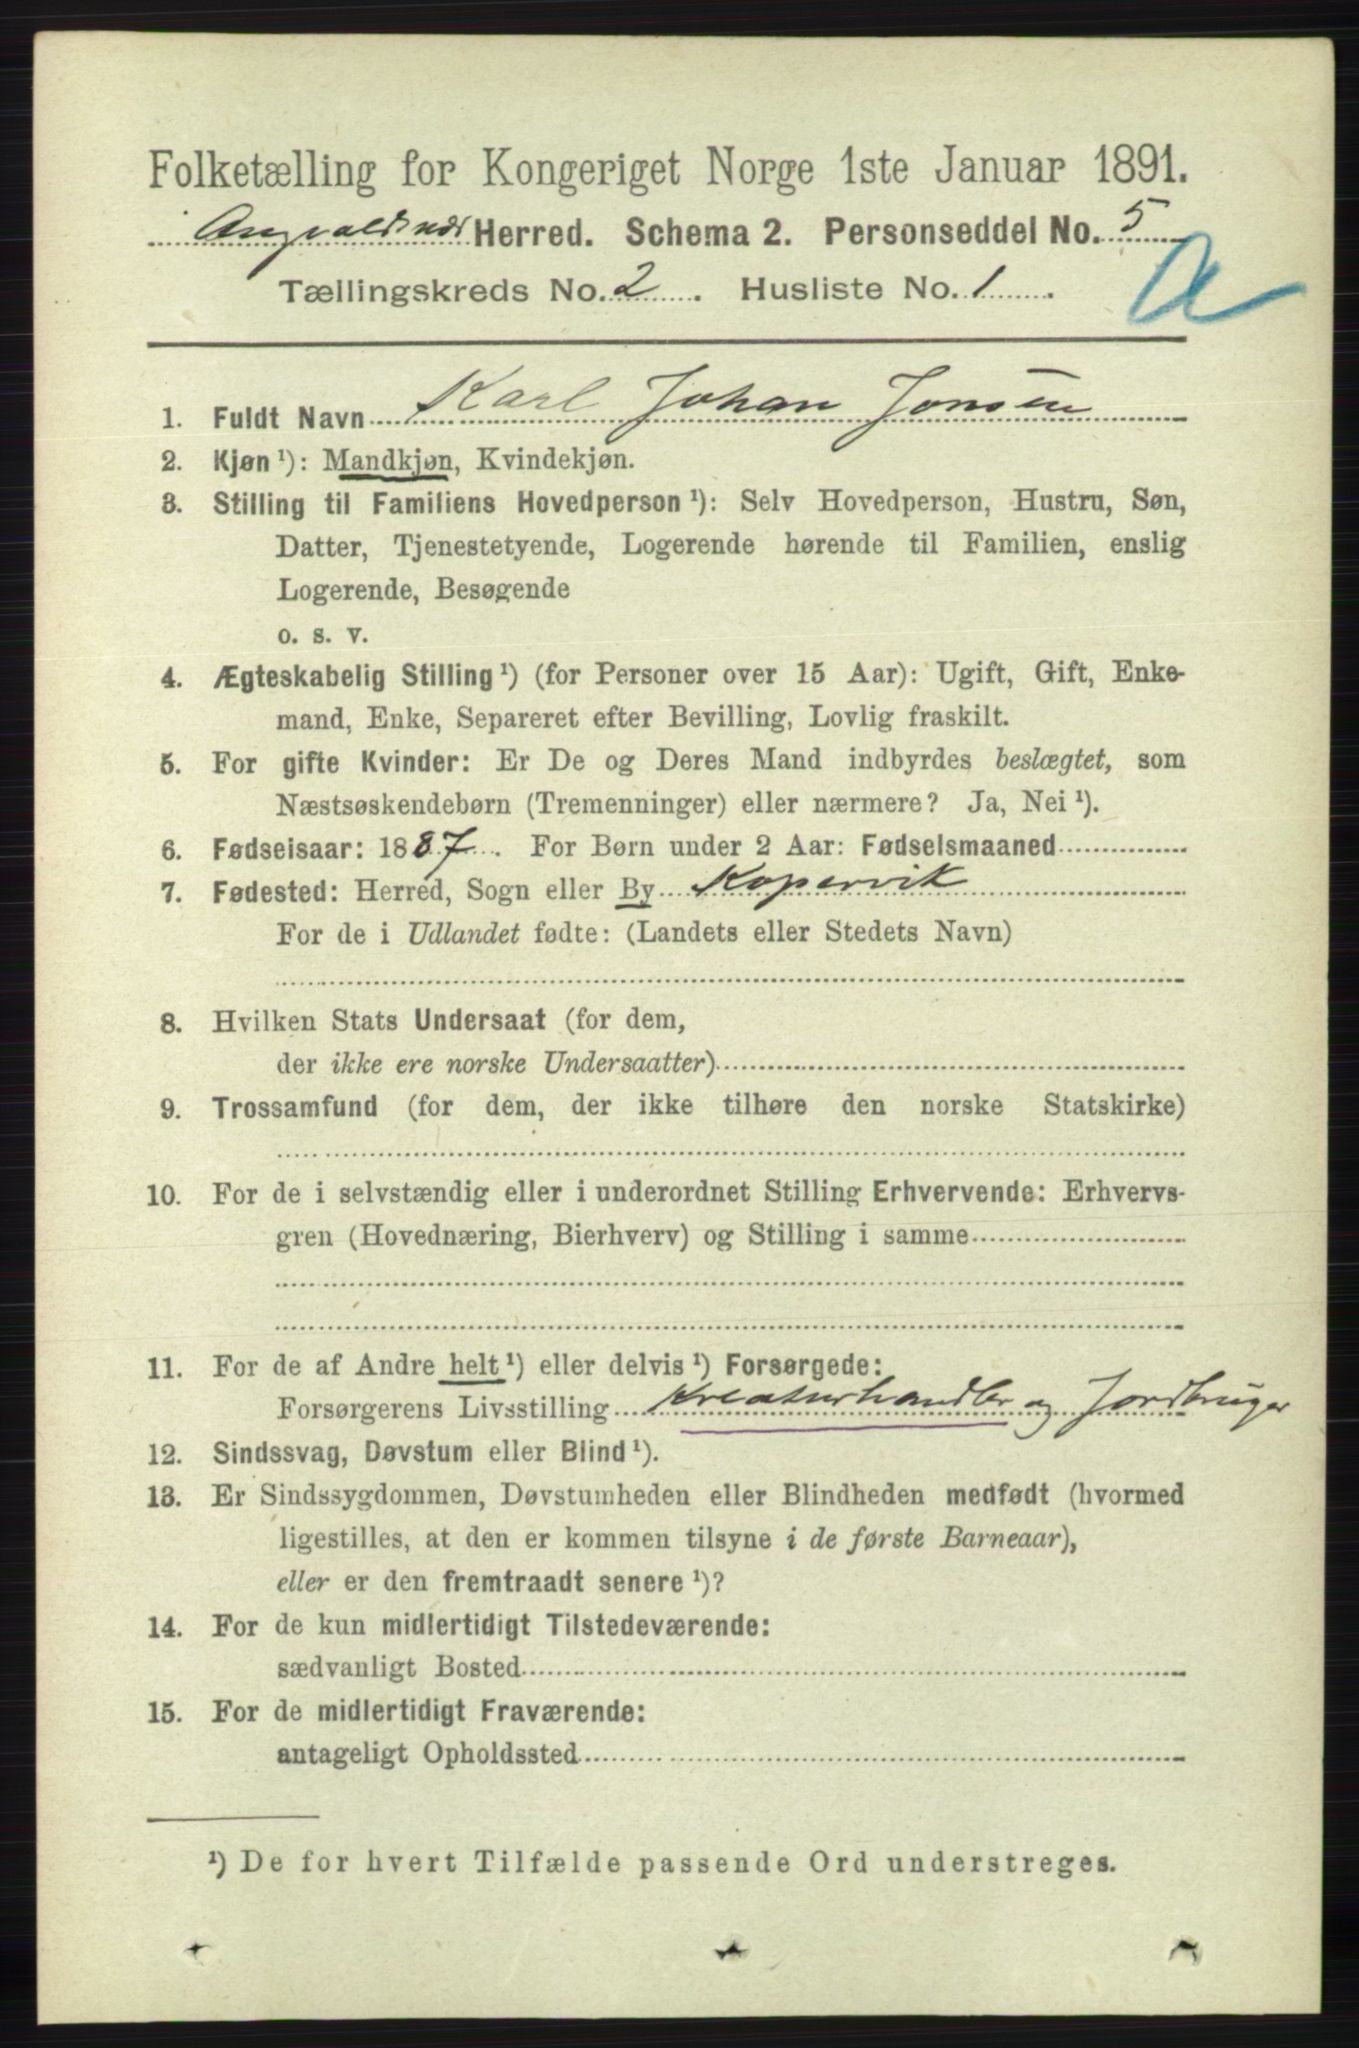 Folketælling for Kongeriget Norge 1ste Januar 1891.
Augvaldsnæs Herred. Schema 2. Personseddel No. 5
Tællingskreds No. 2. Husliste No. 1.
a
1. Fuldt Navn Karl Johan Jonsen
2. Kjøn ¹): Mandkjøn, Kvindekjøn.
3. Stilling til Familiens Hovedperson ¹): Selv Hovedperson, Hustru, Søn,
Datter, Tjenestetyende, Logerende hørende til Familien, enslig
Logerende, Besøgende
o. s. v.
4. Ægteskabelig Stilling ¹) (for Personer over 15 Aar): Ugift, Gift, Enke-
mand, Enke, Separeret efter Bevilling, Lovlig fraskilt.
5. For gifte Kvinder: Er De og Deres Mand indbyrdes beslægtet, som
Næstsøskendebørn (Tremenninger) eller nærmere? Ja, Nei ¹).
6. Fødselsaar: 1887. For Børn under 2 Aar: Fødselsmaaned
7. Fødested: Herred, Sogn eller By Kopervik
For de i Udlandet fødte: (Landets eller Stedets Navn)
8. Hvilken Stats Undersaat (for dem,
der ikke ere norske Undersaatter)
9. Trossamfund (for dem, der ikke tilhøre den norske Statskirke)
10. For de i selvstændig eller i underordnet Stilling Erhvervende: Erhvervs-
gren (Hovednæring, Bierhverv) og Stilling i samme
11. For de af Andre helt ¹) eller delvis ¹) Forsørgede:
Forsørgerens Livsstilling Kreaturhandler og Jordbruger
12. Sindssvag, Døvstum eller Blind ¹).
13. Er Sindssygdommen, Døvstumheden eller Blindheden medfødt (hvormed
ligestilles, at den er kommen tilsyne i de første Barneaar),
eller er den fremtraadt senere ¹)?
14. For de kun midlertidigt Tilstedeværende:
sædvanligt Bosted
15. For de midlertidigt Fraværende:
antageligt Opholdssted
¹) De for hvert Tilfælde passende Ord understreges.